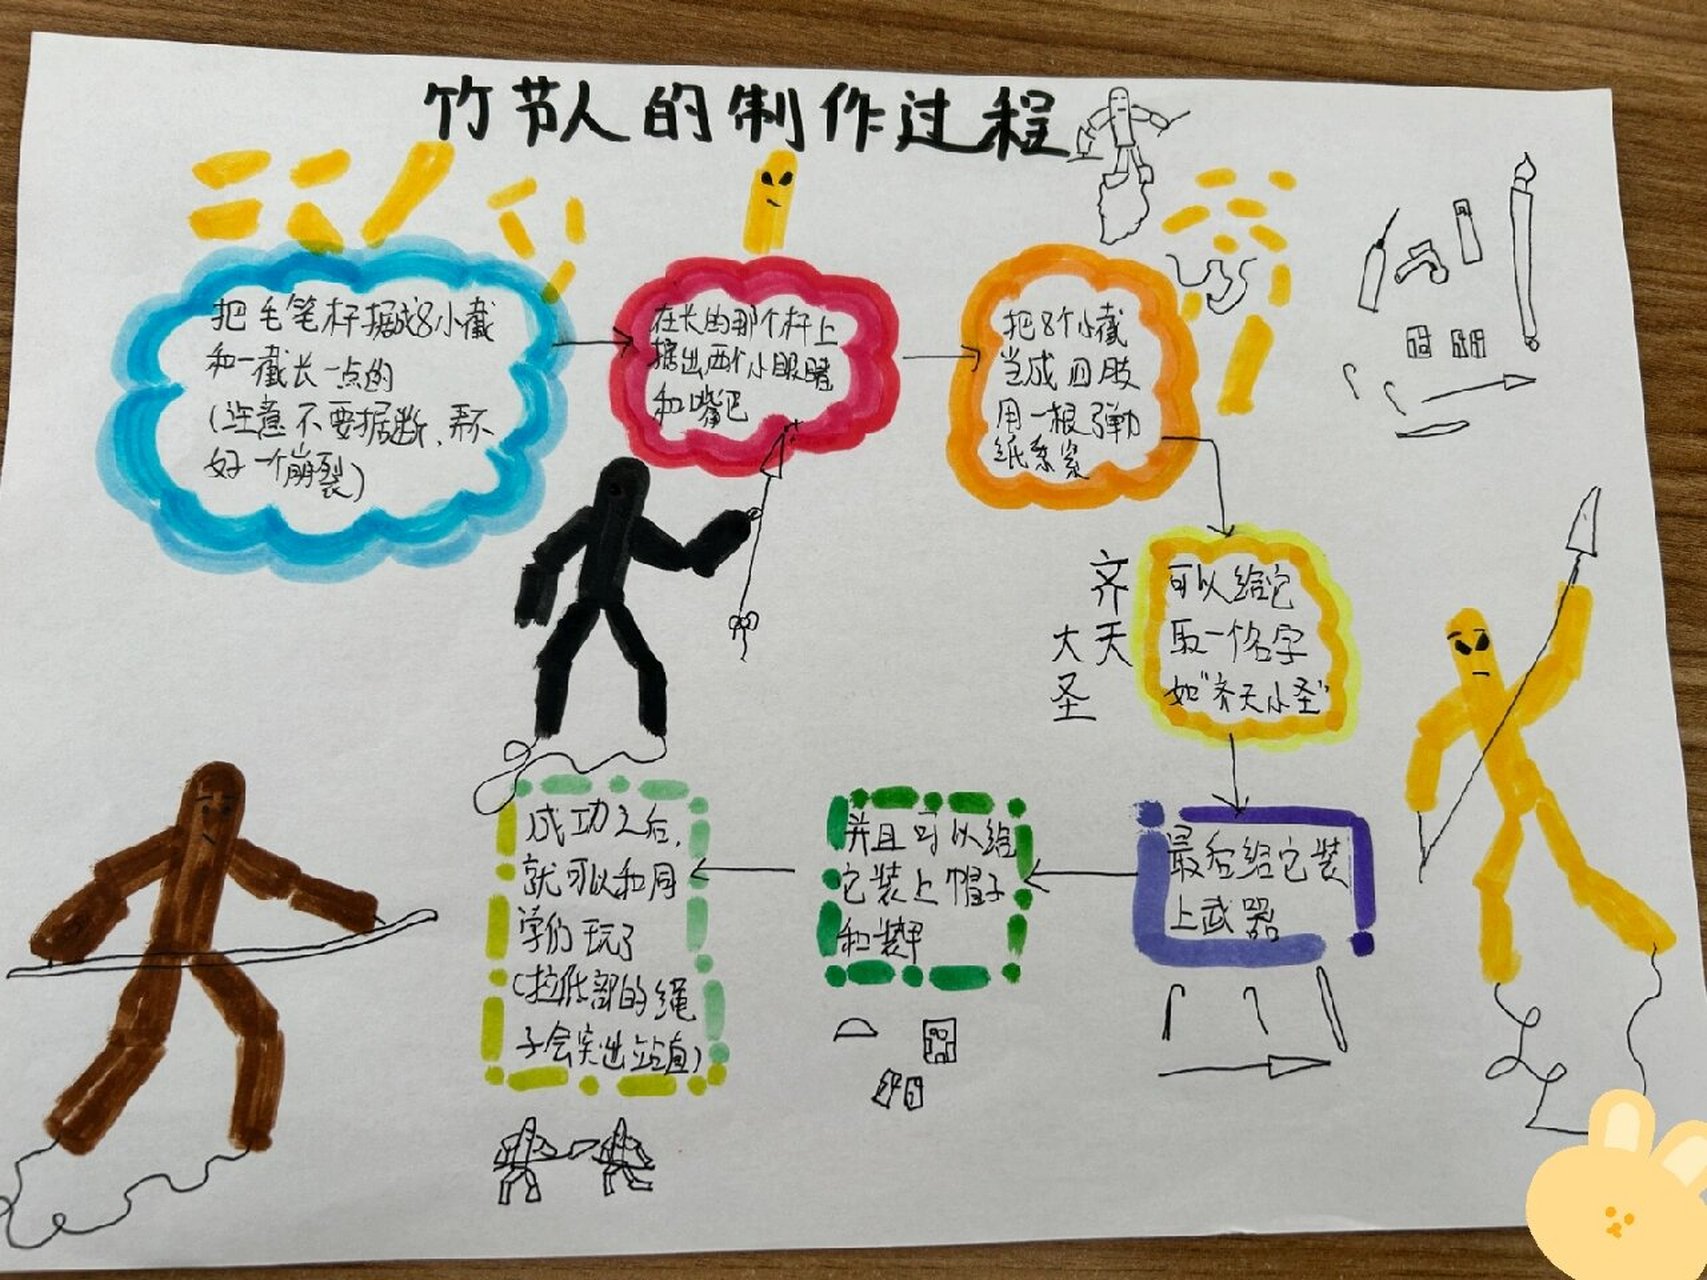 竹节人的制作过程
把毛笔杆据成8小截
和一截长一点的
(注意不要据断,弄不
好一个崩裂)
在长的那个杆上
据出两个小眼睛
和嘴巴
把8个小截
当成四肢
用一根弹力
纸系紧
可以给它
取一个名字
如"齐天小圣"
齐
天
大
圣
最后给它装
上武器
并且可以给
它装上帽子
和装甲
成功之后,
就可以和同
学们玩了
(拉低部的绳
子会突出站直)